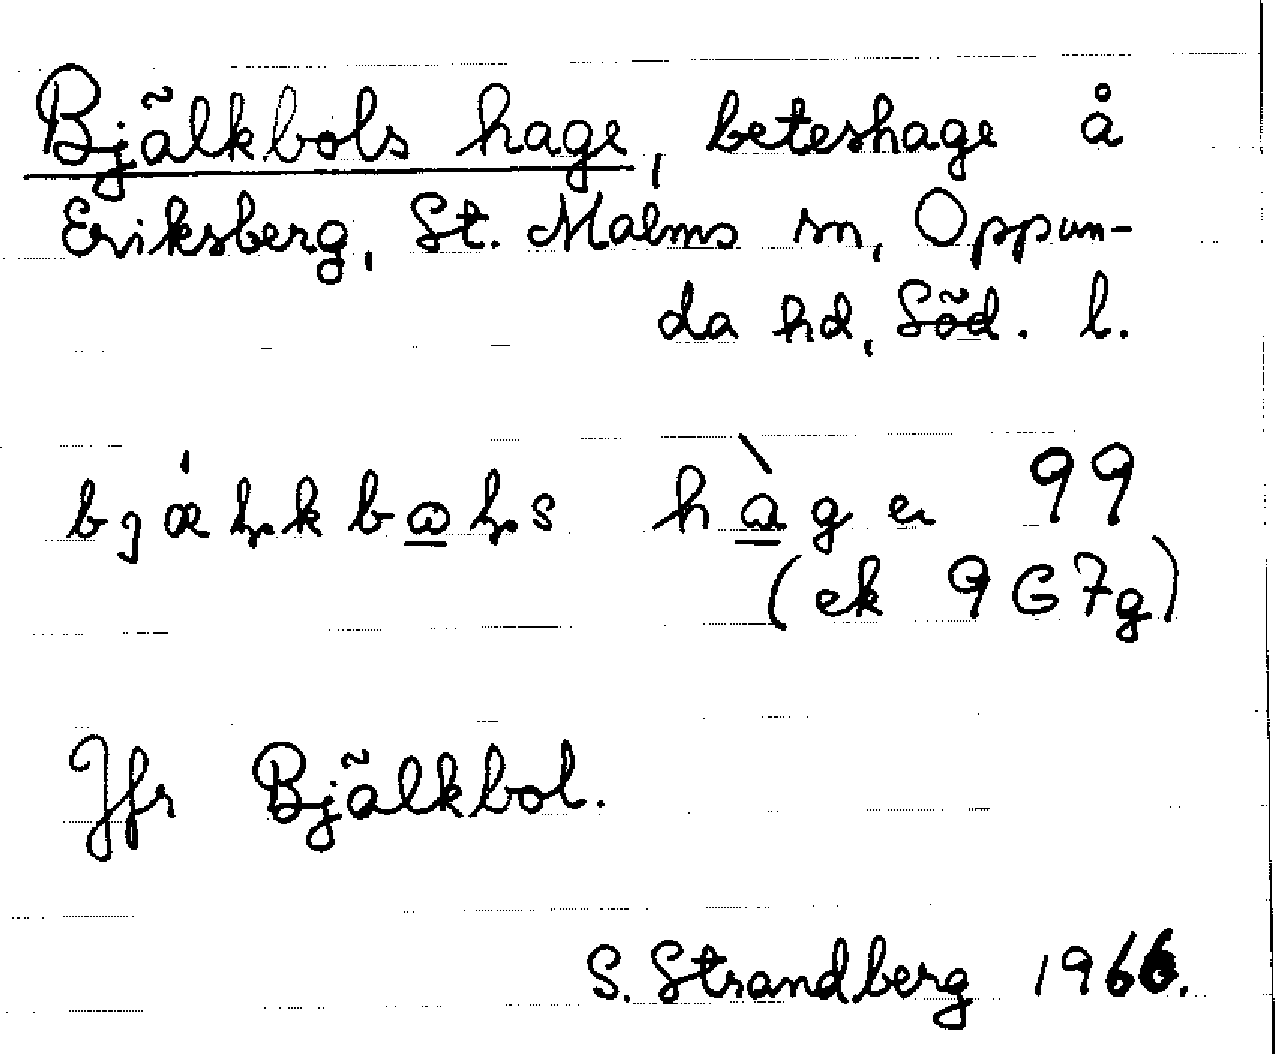 Bjälkbols hage, beteshage å
Eriksberg, St. Malms sn, Oppun-
da hd, Söd. l.
hàgen 99
(ek 9G7g)
Jfr Bjälkbol.
S. Strandberg 1966.